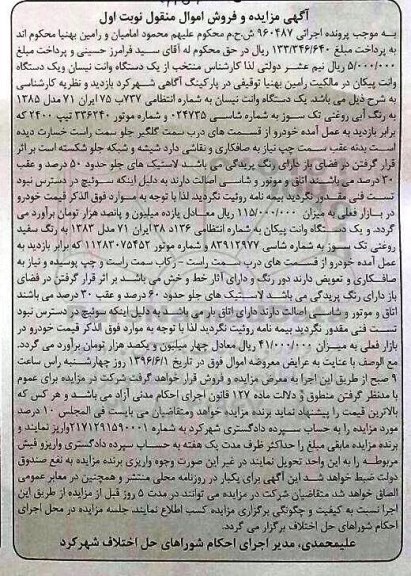 آگهی مزایده و فروش اموال منقول نوبت اول
به موجب پرونده اجرائی ۹۶۰۴۸۷ ش.ح.م محکوم علیهم محمود امامیان و رامین بهنیا محکوم اند
به پرداخت مبلغ ۱۳۳/۳۴۶/۶۴۰ ریال در حق محکوم له آقای سید فرامرز حسینی و پرداخت مبلغ
۵/۰۰۰/۰۰۰ ریال نیم عشر دولتی لذا کارشناس منتخب از یک دستگاه وانت نیسان ویک دستگاه
وانت پیکان در مالکیت رامین بهنیا توقیفی در پارکینگ آگاهی شهرکرد بازدید و نظریه کارشناسی
به شرح ذیل می باشد. یک دستگاه وانت نیسان به شماره انتظامی ۷۳۷ب ۷۵ ایران ۷۱ مدل ۱۳۸۵
به رنگ آبی روغنی تک سوز به شماره شاسی ۰۲۴۷۳۵ و شماره موتور ۳۳۶۲۴۰ تیپ ۲۴۰۰ که
برابر بازدید به عمل آمده خودرو از قسمت های درب سمت گلگیر جلو سمت راست خسارت دیده
است بدنه عقب سمت چپ نیاز به صافکاری و نقاشی دارد شیشه و شبکه جلو شکسته است بر اثر
قرار گرفتن در فضای باز دارای رنگ پریدگی می باشد لاستیک های جلو حدود ۵۰ درصد و عقب
۳۰ درصد می باشند اتاق و موتور و شاسی اصالت دارند به دلیل اینکه سوئیچ در دسترس نبود
تست فنی مقدور نگردید بیمه نامه روئیت نگردید لذا با توجه به موارد فوق الذکر قیمت خودرو
در بازار فعلی به میزان ۱۱۵/۰۰۰/۰۰۰ ریال معادل یازده میلیون و پانصد هزار تومان برآورد می
گردد. و یک دستگاه وانت پیکان به شماره انتظامی ۱۳۶د ۳۸ ایران ۷۱ مدل ۱۳۸۳ به رنگ سفید
روغنی تک سوز به شماره شاسی ۸۳۹۱۲۹۷۷ و شماره موتور ۱۱۲۸۳۰۷۵۴۵۲ که برابر بازدید به
عمل آمده خودرو از قسمت های درب سمت راست - رکاب سمت راست و چپ پوسیده و نیاز به
صافکاری و تعویض دارند دور رنگ و دارای آثار خط و خش می باشد بر اثر قرار گرفتن در فضای
باز دارای رنگ پریدگی می باشد لاستیک های جلو حدود ۶۰ درصد و عقب ۳۰ درصد می باشند
اتاق و موتور و شاسی اصالت دارند دارای اتاق بار می باشد به دلیل اینکه سوئیچ در دسترس نبود
تست فنی مقدور نگردید بیمه نامه روئیت نگردید لذا با توجه به موارد فوق الذکر قیمت خودرو در
بازار فعلی به میزان ۴۱/۰۰۰/۰۰۰ ریال معادل چهار میلیون و یکصد هزار تومان برآورد می گردد.
مع الوصف با عنایت به عرایض معروضه اموال فوق در تاریخ ۱۳۹۶/۶/۱ روز چهارشنبه راس ساعت
۹ صبح از طریق این اجرا به معرض مزایده و فروش قرار خواهد گرفت شرکت در مزایده برای عموم
با مدنظر گرفتن منطوق و دلالت ماده ۱۲۷ قانون اجرای احکام مدنی آزاد می باشد و هر کس که
بالاترین قیمت را پیشنهاد نماید برنده مزایده خواهد ومتقاضیان می بایست فی المجلس ۱۰ درصد
مورد مزایده را به حساب سپرده دادگستری شهرکرد به شماره ۲۱۷۱۲۹۱۵۹۰۰۰۱واریز نمایند و
برنده مزایده مابقی مبلغ را حداکثر ظرف مدت یک هفته به حساب سپرده دادگستری واریزو فیش
مربوطه را به این واحد تحویل نمایند در غیر این صورت وجوه واریزی برنده مزایده به نفع صندوق
دولت ضبط خواهد شد این آگهی برای یکبار در روزنامه محلی منتشر و همچنین در معابر عمومی
الصاق خواهد شد متقاضیان شرکت در مزایده می توانند در مدت ۵ روز قبل از مزایده از طریق این
اجرا نسبت به کیفیت و چگونگی برگزاری مزایده کسب اطلاع نمایند. جلسه مزایده در محل اجرای
احکام شوراهای حل اختلاف برگزار می گردد.
علیمحمدی، مدیر اجرای احکام شوراهای حل اختلاف شهرکرد